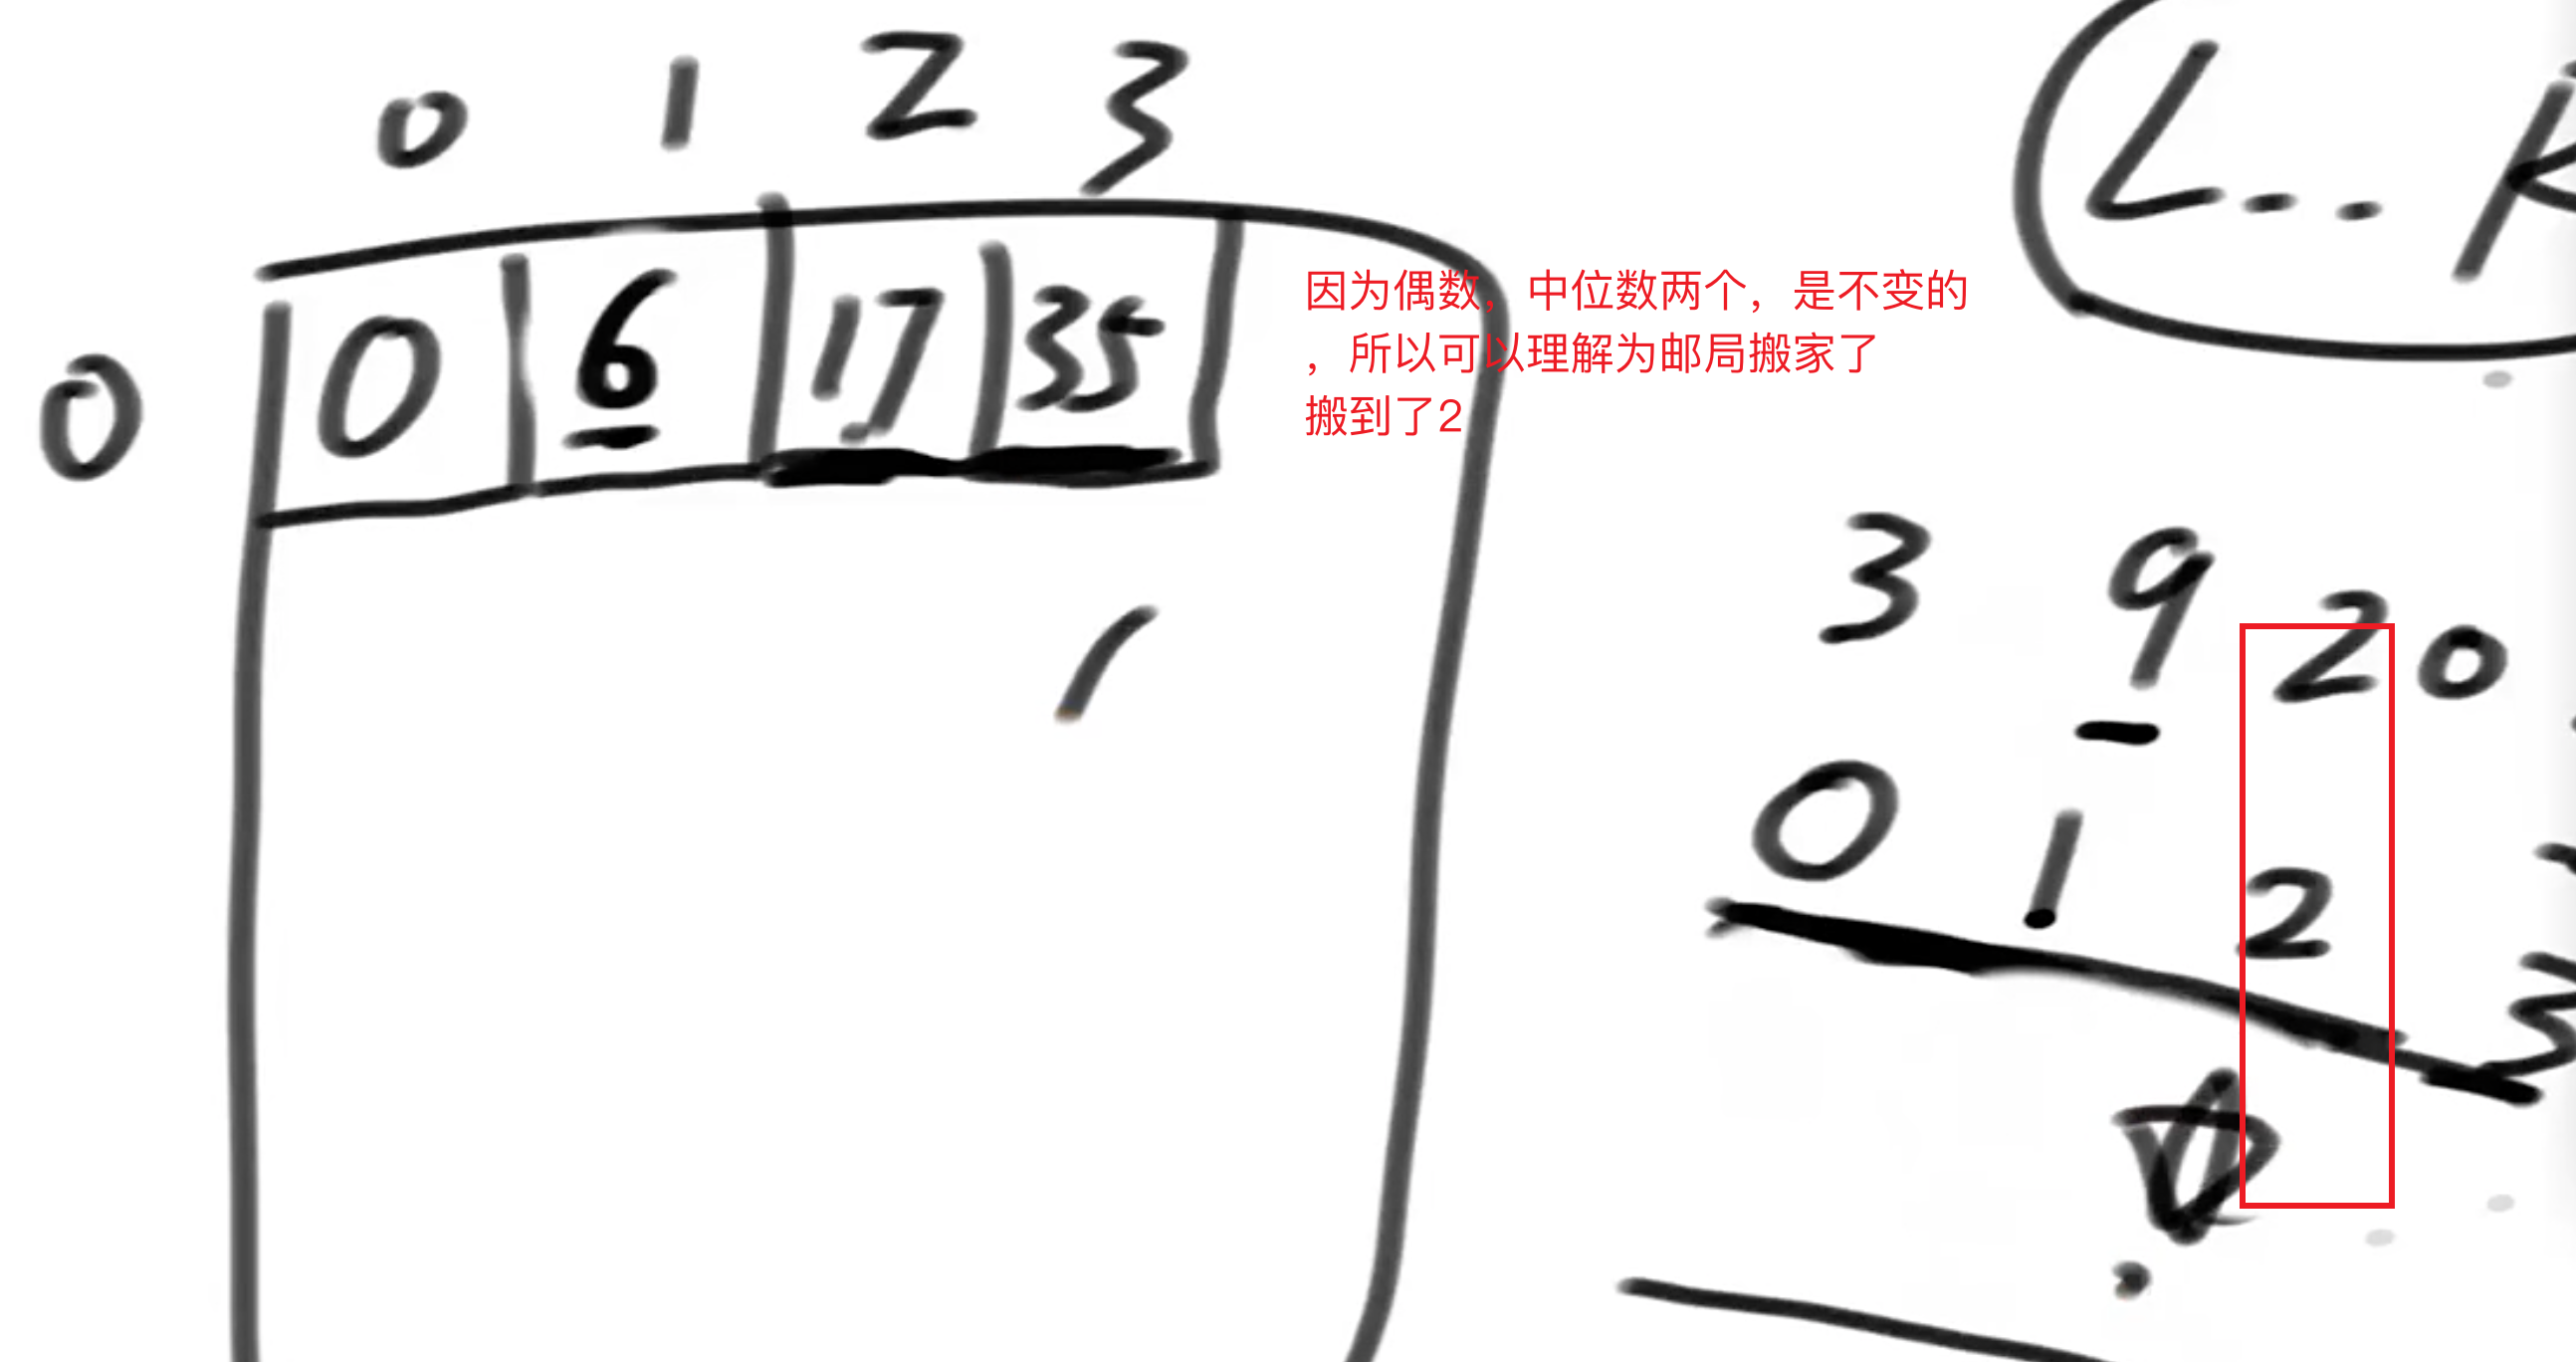 0 1 2 3
L...
0 0 6 17 35
因为偶数，中位数两个，是不变的
，所以可以理解为邮局搬家了
搬到了2
3 9 20
0 1 2 3